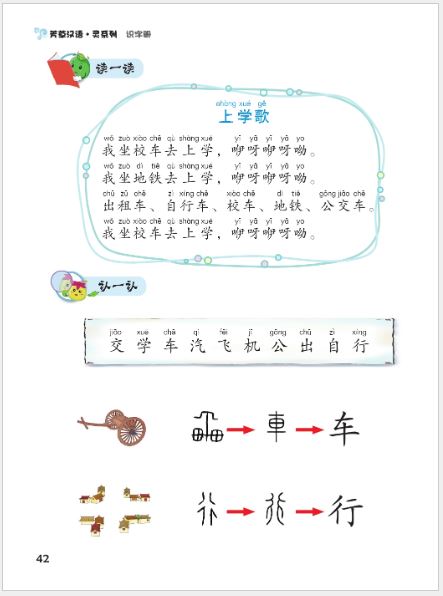 芙蓉汉语·灵系列 识字册
读一读
shàng xué gē
上学歌
wǒ zuò xiào chē qù shàng xué yī yā yī yā yo
我坐校车去上学，咿呀咿呀呦。
wǒ zuò dì tiě qù shàng xué yī yā yī yā yo
我坐地铁去上学，咿呀咿呀呦。
chū zū chē zì xíng chē xiào chē dì tiě gōng jiāo chē
出租车、自行车、校车、地铁、公交车。
wǒ zuò xiào chē qù shàng xué yī yā yī yā yo
我坐校车去上学，咿呀咿呀呦。
认一认
jiāo xué chē qì fēi jī gōng chū zì xíng
交 学 车 汽 飞 机 公 出 自 行
車 车
行
42